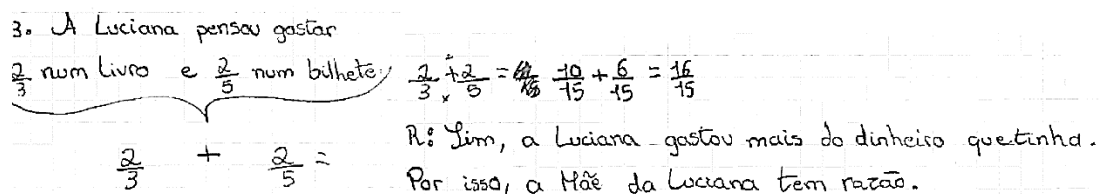 3. A Luciana pensou gastar
2/3 num livro e 2/5 num bilhete
2/3 + 2/5 =
2/3 + 2/5 = 10/15 + 6/15 = 16/15
R: Sim, a Luciana gastou mais do dinheiro que tinha.
Por isso, a Mãe da Luciana tem razão.